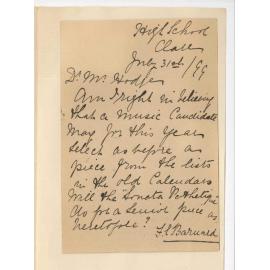 High School
Clare
July 31st/99
Dr Mr Hodge
Am I right in believing
that a Music Candidate
May for this Year
select as before a
piece from the lists
in the old Calendars
Will the Sonata Pathetique
do for a Senior piece as
heretofore?
Barnard